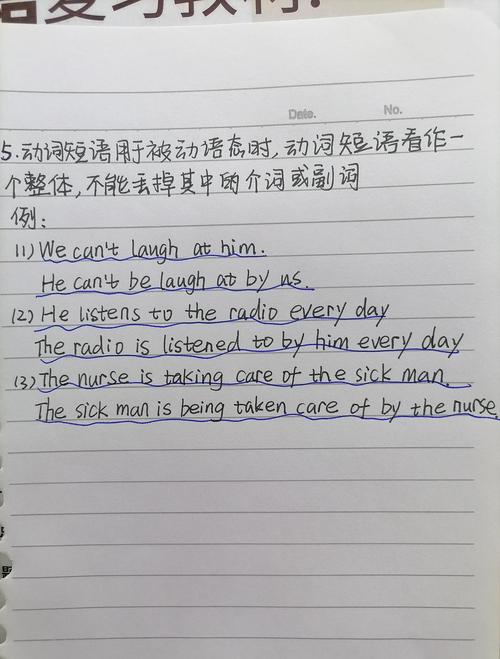 语复习教材:
Date. No.
5.动词短语用于被动语态时,动词短语看作一
个整体,不能丢掉其中的介词或副词
例:
11) We can't laugh at him.
He can't be laugh at by us.
(2) He listens to the radio every day
The radio is listened to by him every day
(3) The nurse is taking care of the sick man.
The sick man is being taken care of by the nurse.